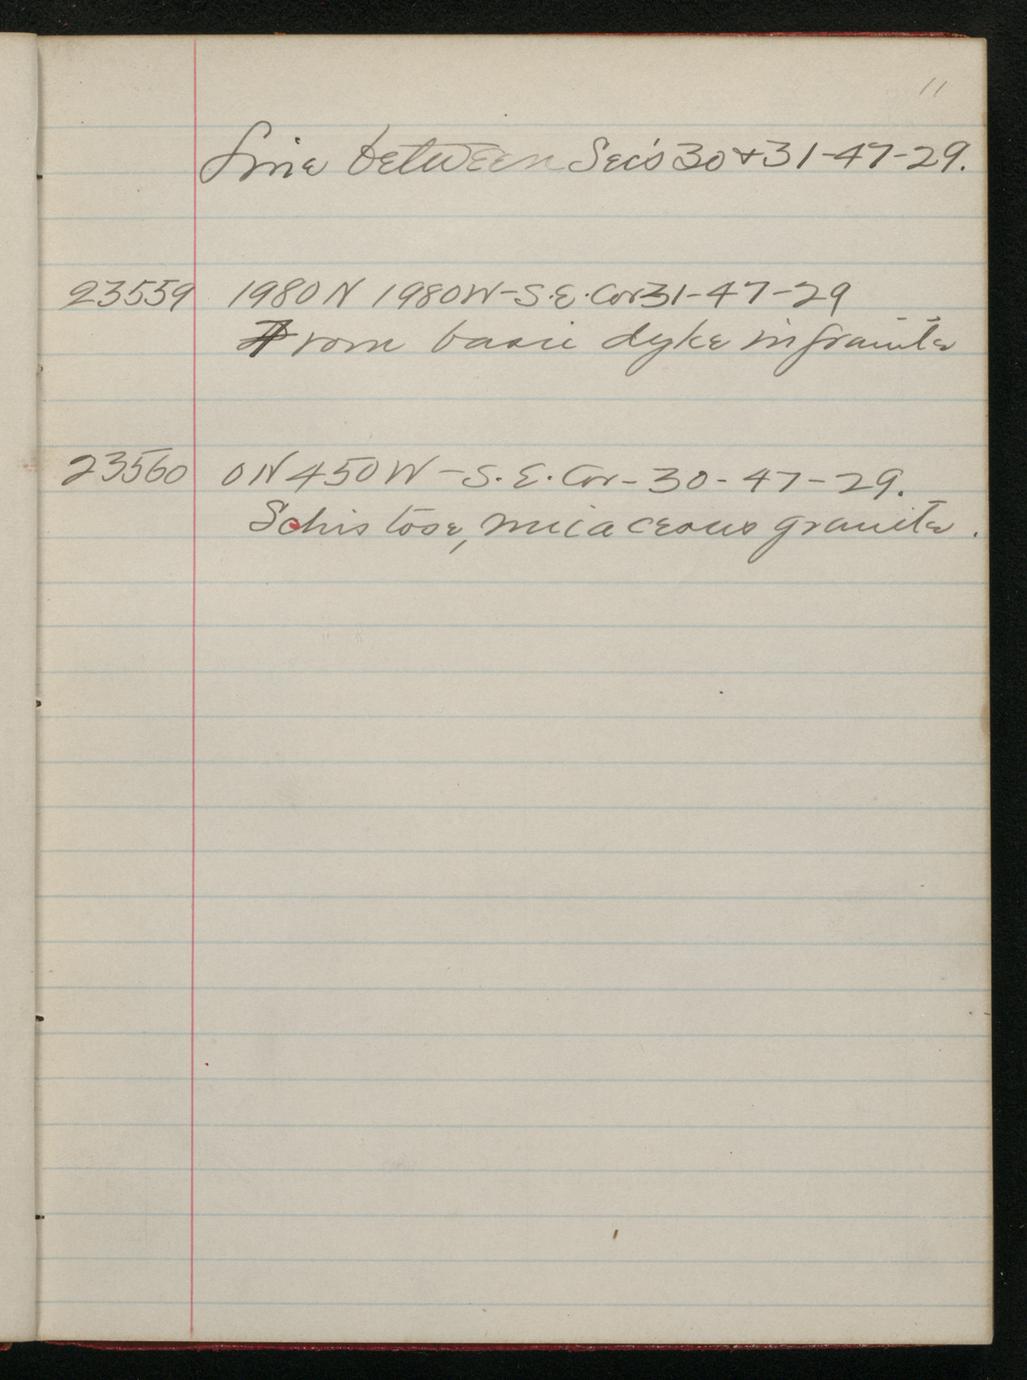 11
Line between Sec's 30 + 31-47-29.
23559 1980 N 1980 W - S.E. Cor 31-47-29
From basic dyke in granite
23560 0 N 450 W - S.E. Cor - 30-47-29.
Schistose, micaceous granite.